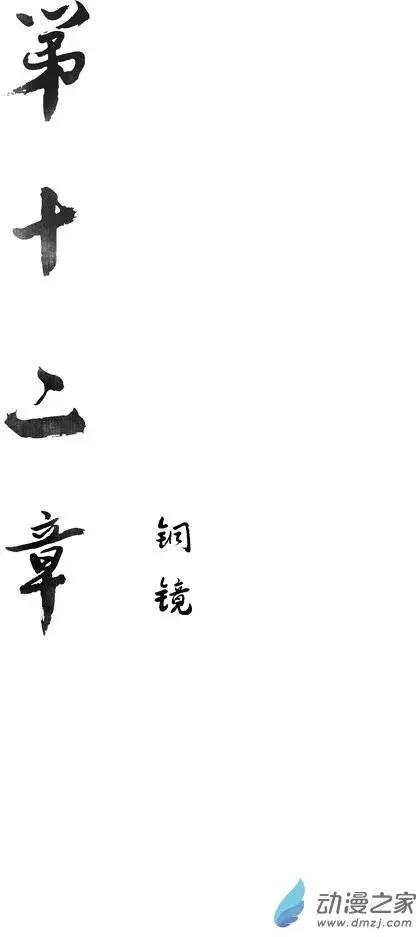 第十二章
铜镜
动漫之家
www.dmzj.com